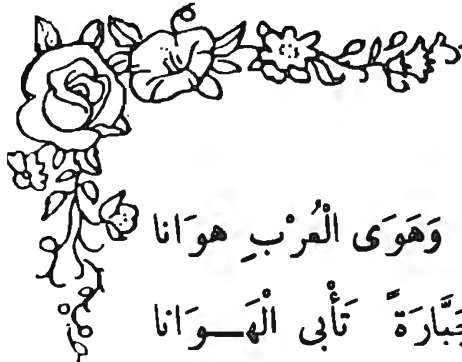 وَهَوَى الْعُرْبِ هوَانا
جَبَّارَةً تَأْبى الْهَــوَانا